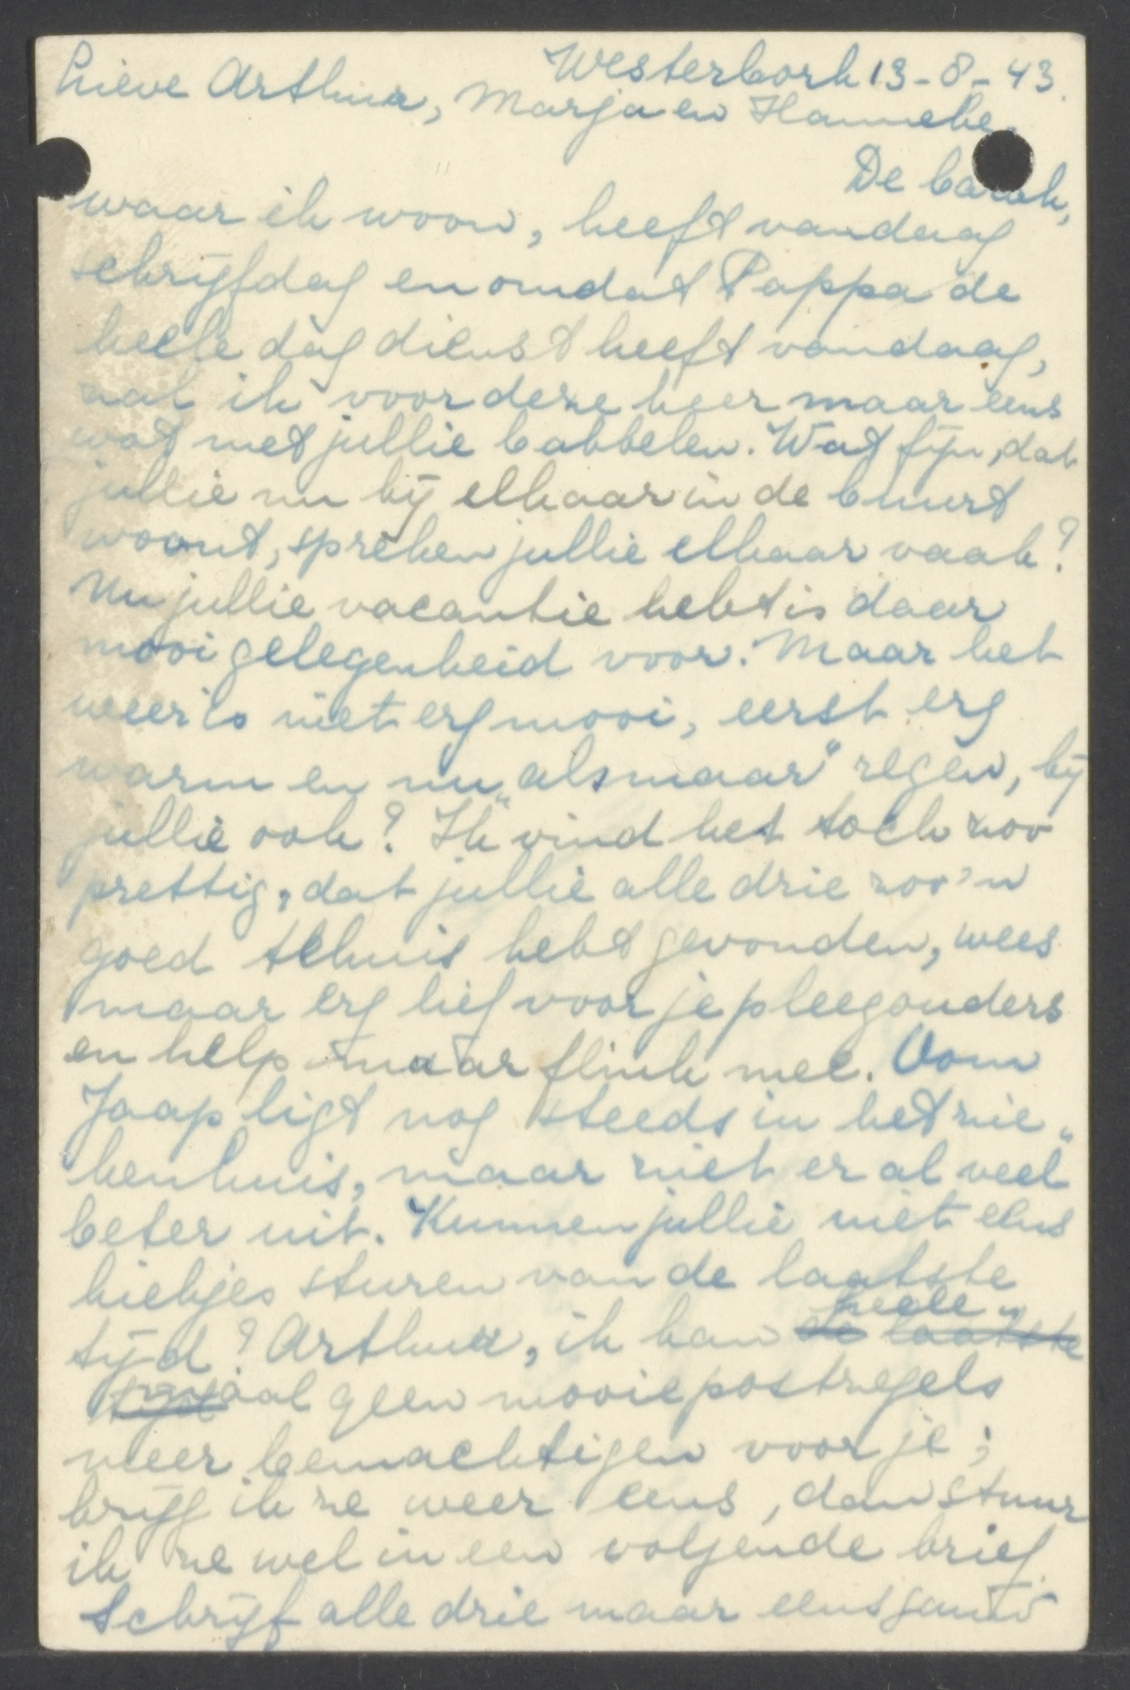 Westerbork 13-8-43.
Lieve Arthur, Marja en Hanneke,
De barak,
waar ik woon, heeft vandaag
schrijfdag en omdat Pappa de
heele dag dienst heeft vandaag,
zal ik voor deze keer maar eens
wat met jullie babbelen. Wat fijn, dat
jullie nu bij elkaar in de buurt
woont, spreken jullie elkaar vaak?
Nu jullie vacantie hebt is daar
mooi gelegenheid voor. Maar het
weer is niet erg mooi, eerst erg
warm en nu „alsmaar" regen, bij
jullie ook? Ik vind het toch zoo
prettig, dat jullie alle drie zoo'n
goed tehuis hebt gevonden, wees
maar erg lief voor je pleegouders
en help maar flink mee. Oom
Jaap ligt nog steeds in het zie„
kenhuis, maar ziet er al veel
beter uit. Kunnen jullie niet eens
kiekjes sturen van de laatste
tijd? Arthur, ik kan de laatste heele„
tijd maal geen mooie postzegels
meer bemachtigen voor je;
krijg ik ze weer eens, dan stuur
ik ze wel in een volgende brief.
Schrijf alle drie maar eens gauw